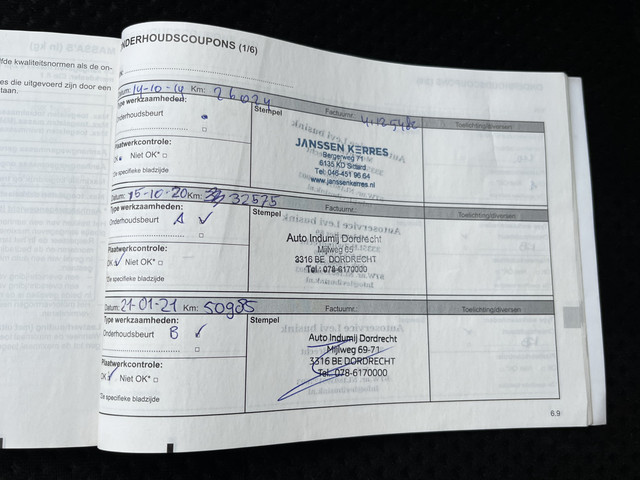 MASSA'S (in kg)
fde kwaliteitsnormen als de on-
es die uitgevoerd zijn door een
taan.
ONDERHOUDSCOUPONS (1/6)
Datum: 14-10-19 Km: 26024
Factuurnr.:
Toelichting/diversen
Type werkzaamheden:
Stempel
Onderhoudsbeurt
JANSSEN KERRES
Bergerweg 71
6135 KD Sittard
Tel: 046-451 96 64
www.janssenkerres.nl
Plaatwerkcontrole:
OK Niet OK* □
*Zie specifieke bladzijde
Datum: 15-10-20 Km: 32575
Factuurnr.:
Toelichting/diversen
Type werkzaamheden:
Stempel
Onderhoudsbeurt A ✓
Auto Indumij Dordrecht
Mijlweg 69
3316 BE DORDRECHT
Tel.: 078-6170000
Plaatwerkcontrole:
OK ✓ Niet OK* □
*Zie specifieke bladzijde
Datum: 21-01-21 Km: 50985
Factuurnr.:
Toelichting/diversen
Type werkzaamheden:
Stempel
Onderhoudsbeurt B ✓
Auto Indumij Dordrecht
Mijlweg 69-71
3316 BE DORDRECHT
Tel.: 078-6170000
Plaatwerkcontrole:
OK ✓ Niet OK* □
*Zie specifieke bladzijde
6.9